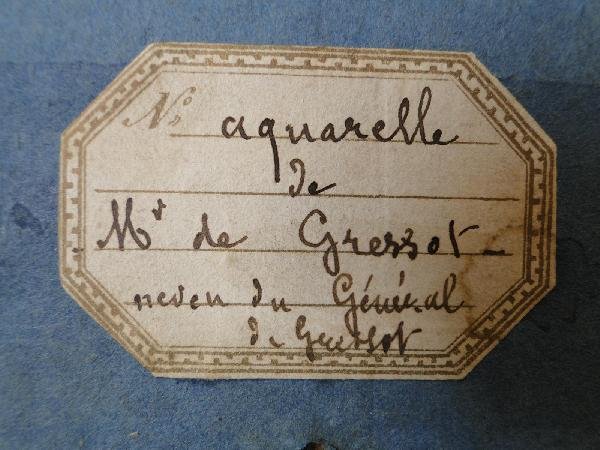 No. aquarelle
de
Mr de Gressot
neveu du Général
de Gressot